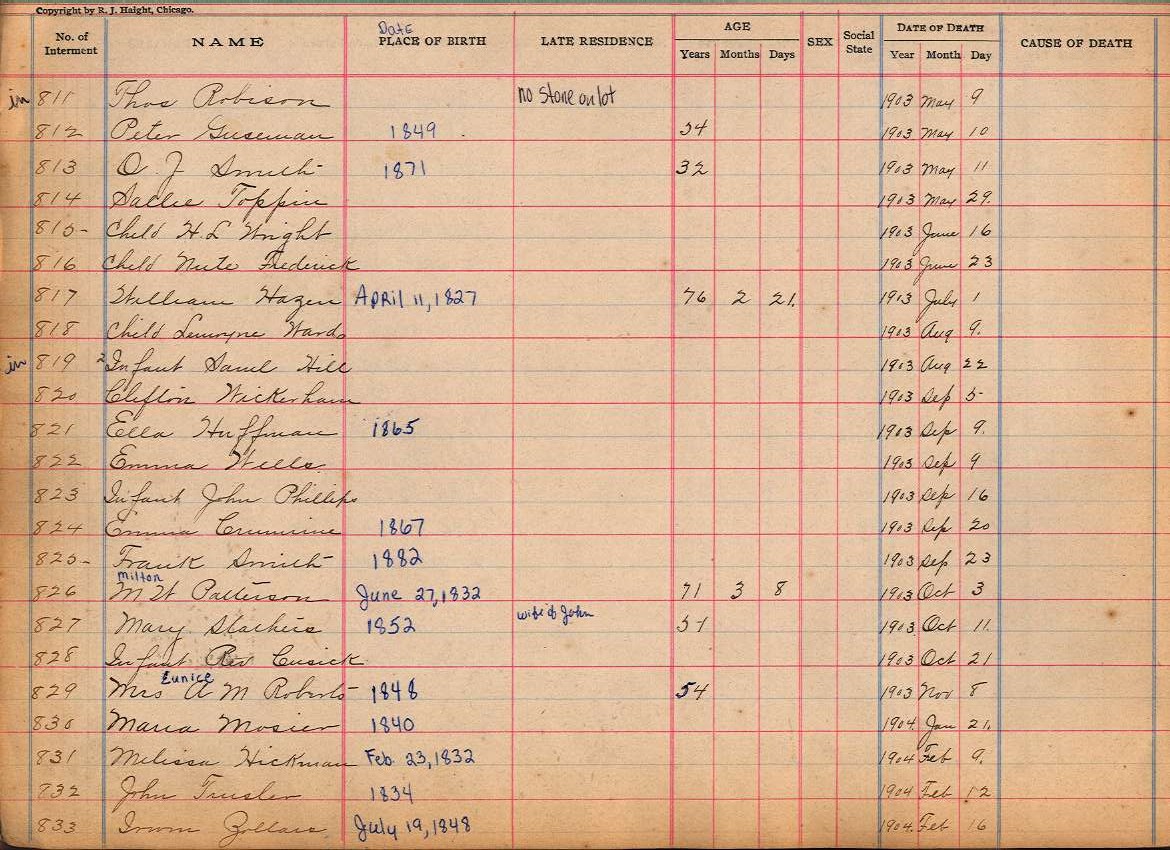 Copyright by R. J. Haight, Chicago.
No. of Interment NAME Date PLACE OF BIRTH LATE RESIDENCE AGE Years Months Days SEX Social State DATE OF DEATH Year Month Day CAUSE OF DEATH
in 811 Thos Robison no stone on lot 1903 May 9
812 Peter Guseman 1849 54 1903 May 10
813 O. J Smith 1871 32 1903 May 11
814 Sallie Toppin 1903 May 29.
815- Child H L Wright 1903 June 16
816 Child Nute Frederick 1903 June 23
817 William Hazen April 11, 1827 76 2 21. 1903 July 1
818 Child Lemoyne Ward 1903 Aug 9.
in 819 2 Infant Saml Hill 1903 Aug 22
820 Clifton Wickerham 1903 Sep 5-
821 Ella Huffman 1865 1903 Sep 9.
822 Emma Wells. 1903 Sep 9
823 Infant John Phillips 1903 Sep 16
824 Emma Crumrine 1867 1903 Sep 20
825- Frank Smith 1882 1903 Sep 23
milton
826 M Patterson June 27, 1832 71 3 8 1903 Oct 3
827 Mary 1852 wife of John 51 1903 Oct 11.
828 Infant Rev Cusick 1903 Oct 21
Eunice
829 Mrs A M Roberts 1848 54 1903 Nov 8
830 Maria Mosier 1840 1904. Jan 21.
831 Melissa Hickman Feb. 23, 1832 1904 Feb 9.
832 John Trusler 1834 1904 Feb 12
833 Zollars July 19, 1848 1904. Feb 16